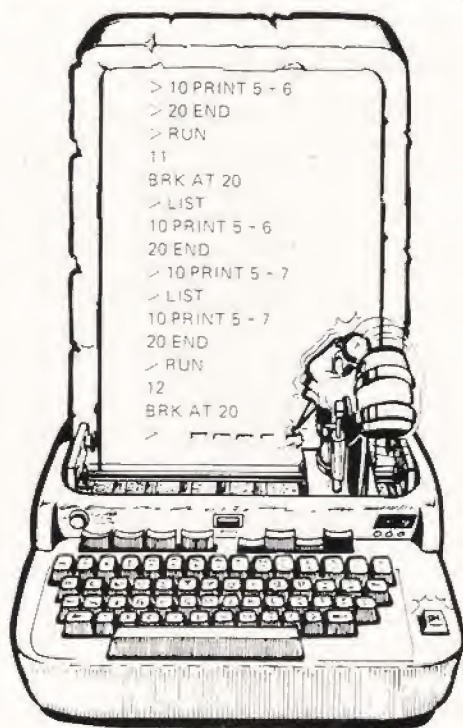 > 10 PRINT 5 - 6
> 20 END
> RUN
11
BRK AT 20
> LIST
10 PRINT 5 - 6
20 END
> 10 PRINT 5 - 7
> LIST
10 PRINT 5 - 7
20 END
> RUN
12
BRK AT 20
>